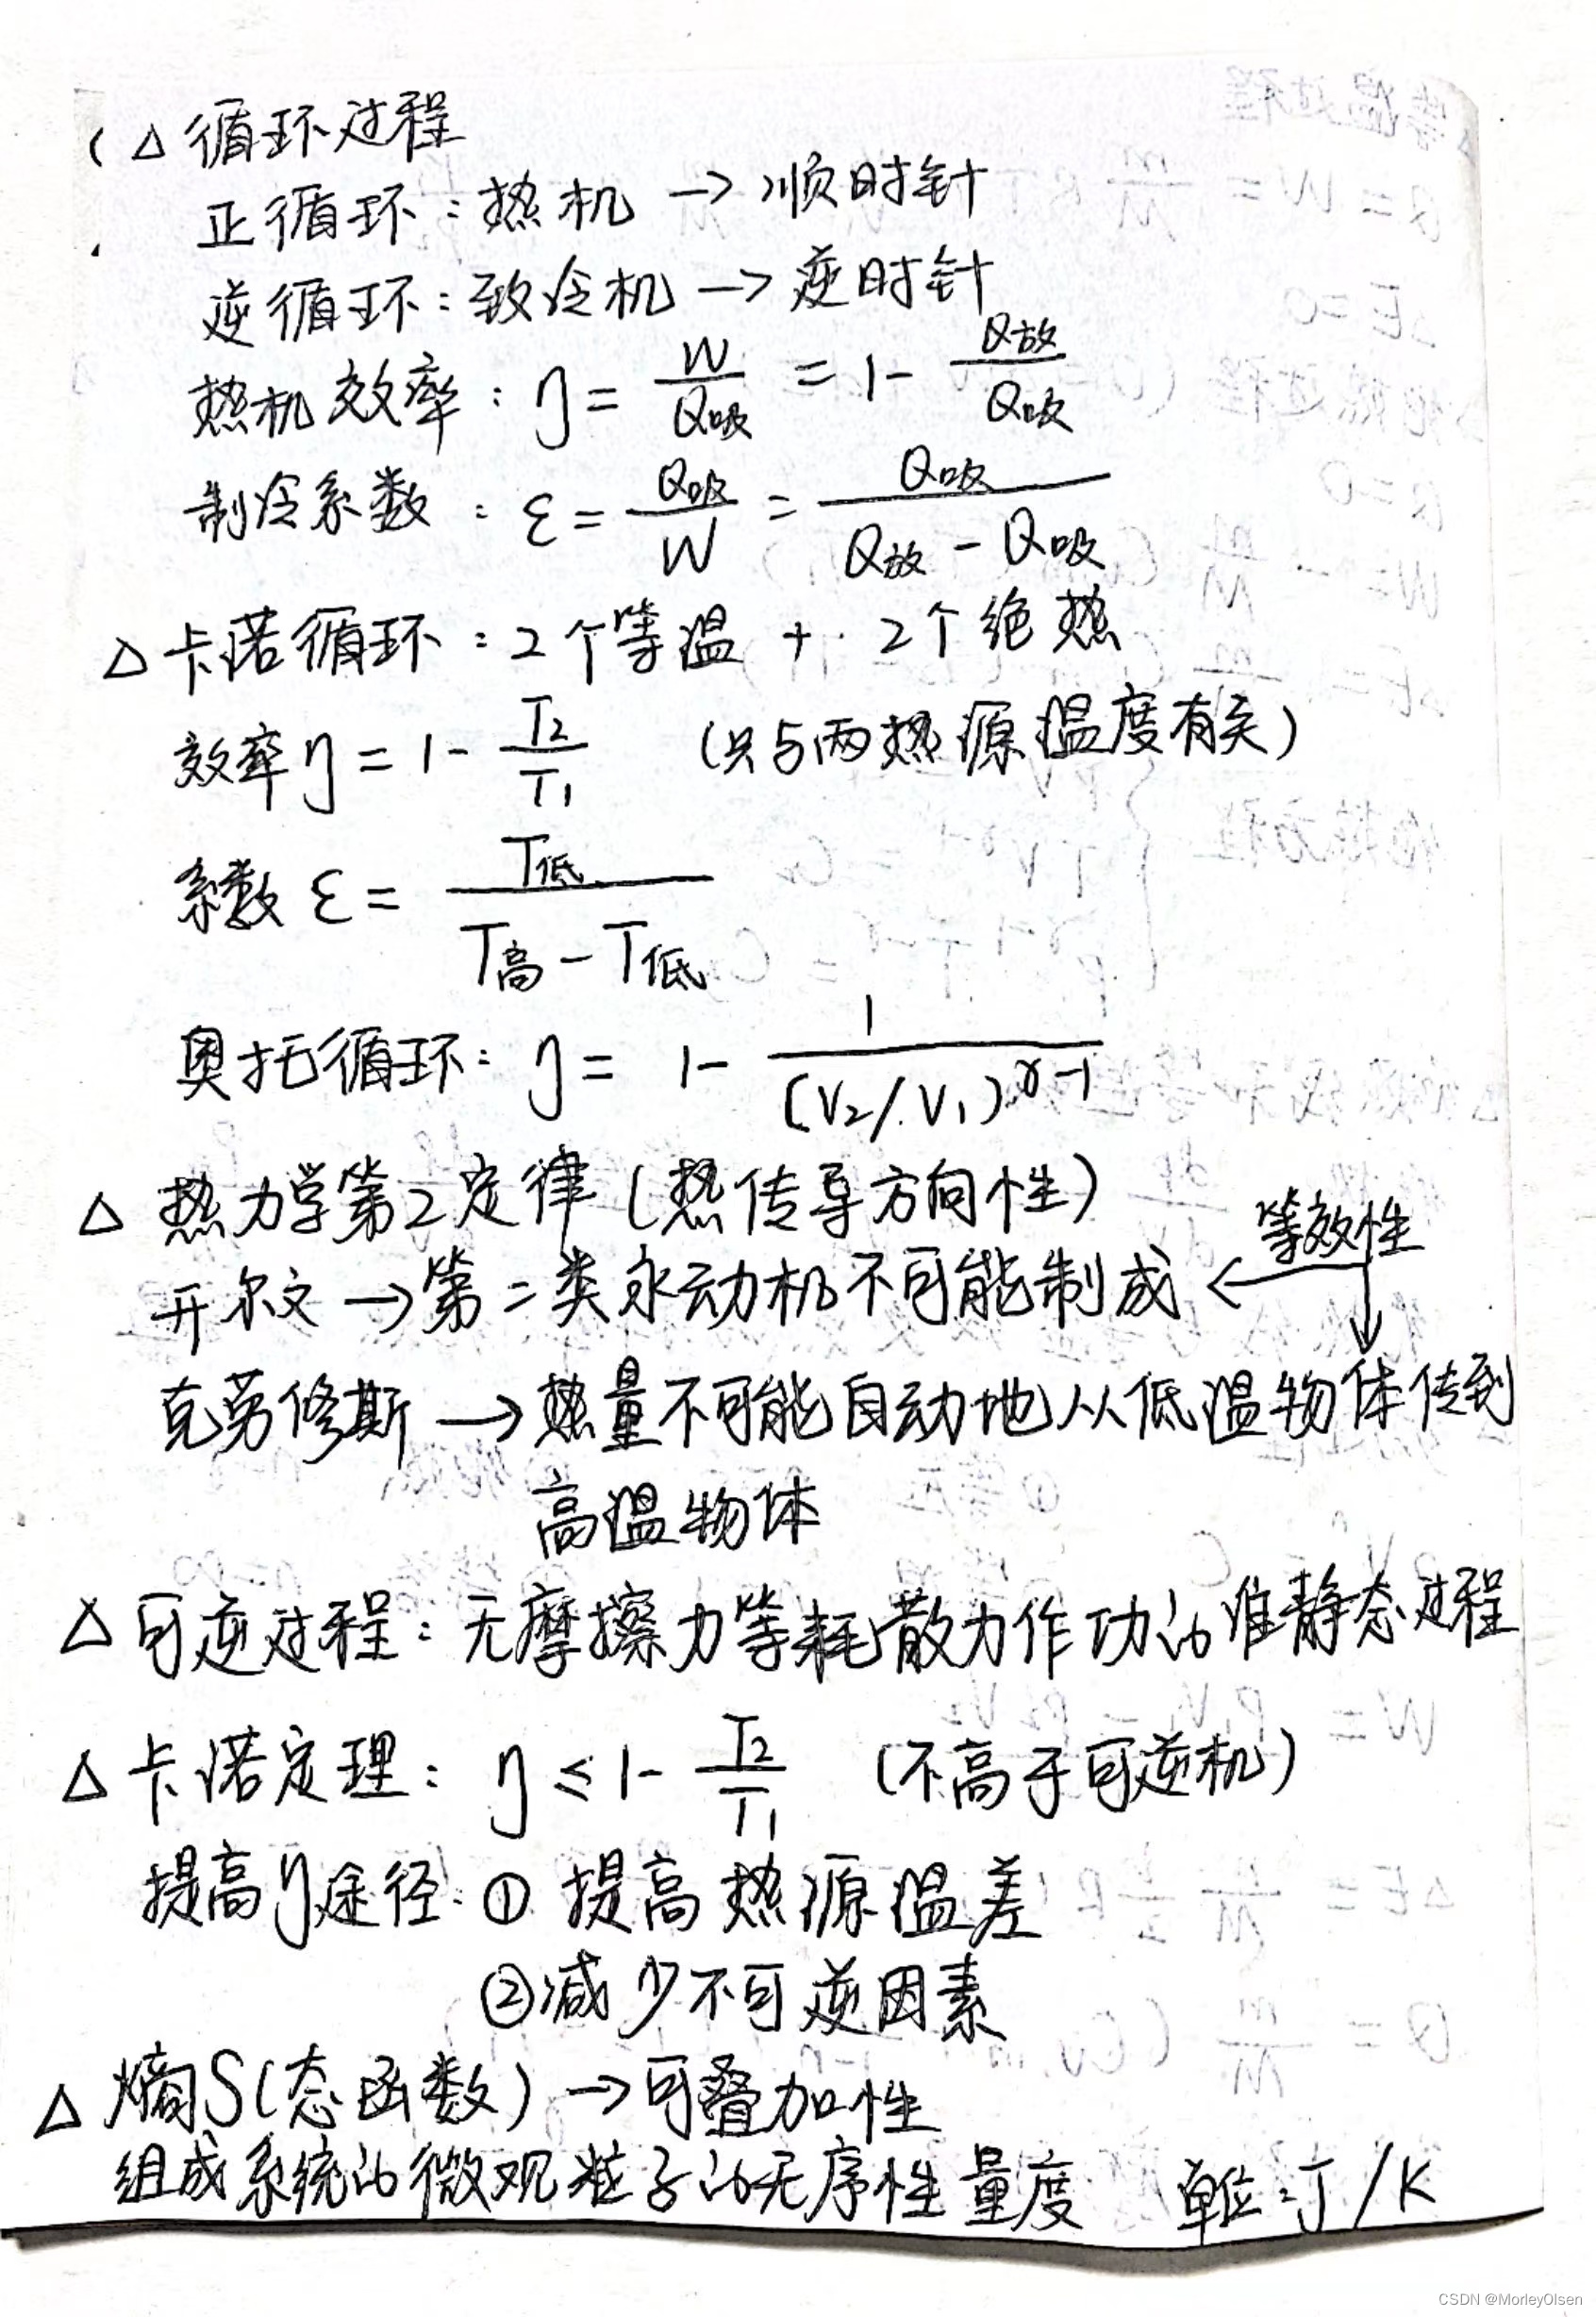 △ 循环过程
正循环：热机 → 顺时针
逆循环：致冷机 → 逆时针
热机效率：η = W/Q吸 = 1 - Q放/Q吸
制冷系数：ε = Q吸/W = Q吸/(Q放 - Q吸)
△ 卡诺循环：2个等温 + 2个绝热
效率η = 1 - T₂/T₁ （只与两热源温度有关）
系数 ε = T低/(T高 - T低)
奥托循环：η = 1 - 1/(V₂/V₁)^(γ-1)
△ 热力学第2定律（热传导方向性）
等效性
开尔文 → 第二类永动机不可能制成 ←
↓
克劳修斯 → 热量不可能自动地从低温物体传到
高温物体
△ 可逆过程：无摩擦力等耗散力作功的准静态过程
△ 卡诺定理：η ≤ 1 - T₂/T₁ （不高于可逆机）
提高η途径：① 提高热源温差
②减少不可逆因素
△ 熵S（态函数）→可叠加性
组成系统的微观粒子的无序性量度 单位：J/K
CSDN @MorleyOlsen